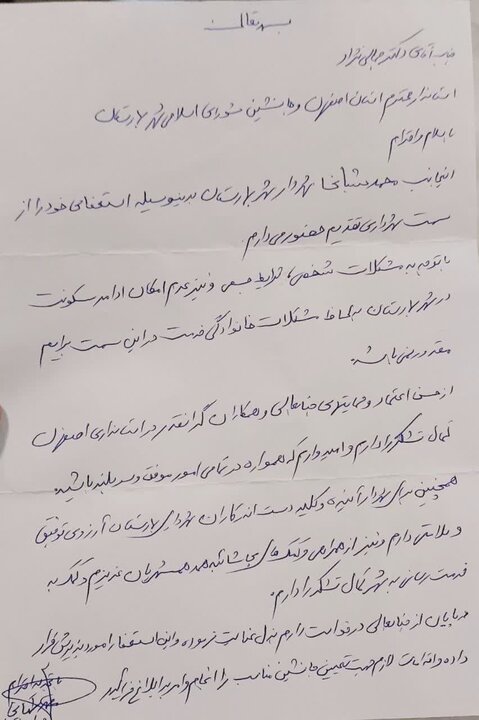 بسمه تعالی
جناب آقای دکتر جمالی نژاد
استاندار محترم استان اصفهان و جانشین شورای اسلامی شهر بهارستان
با سلام و احترام
اینجانب محمد شبانی شهردار شهر بهارستان بدینوسیله استعفای خود را از
سمت شهرداری تقدیم حضور می دارم
با توجه به مشکلات شخصی، شرایط جسمی و نیز عدم امکان ادامه سکونت
در شهر بهارستان به لحاظ مشکلات خانوادگی خدمت در این سمت برایم
مقدور نمی باشد.
از حسن اعتماد و حمایتهای جنابعالی و همکاران گرانقدر در استانداری اصفهان
کمال تشکر را دارم و امیدوارم که همواره در تمامی امور موفق و سربلند باشید.
همچنین برای شهردار آینده و کلیه دست اندرکاران شهرداری بهارستان آرزوی توفیق
و سلامتی دارم و نیز از همراهی و کمک های بی شائبه همه همشهریان عزیزم و کمک به
خدمت رسانی به شهر کمال تشکر را دارم.
در پایان از جنابعالی درخواست دارم بذل عنایت فرموده و این استعفا را مورد پذیرش قرار
داده و اقدامات لازم جهت تعیین جانشین مناسب را انجام و امر به ابلاغ فرمائید
با تجدید احترام